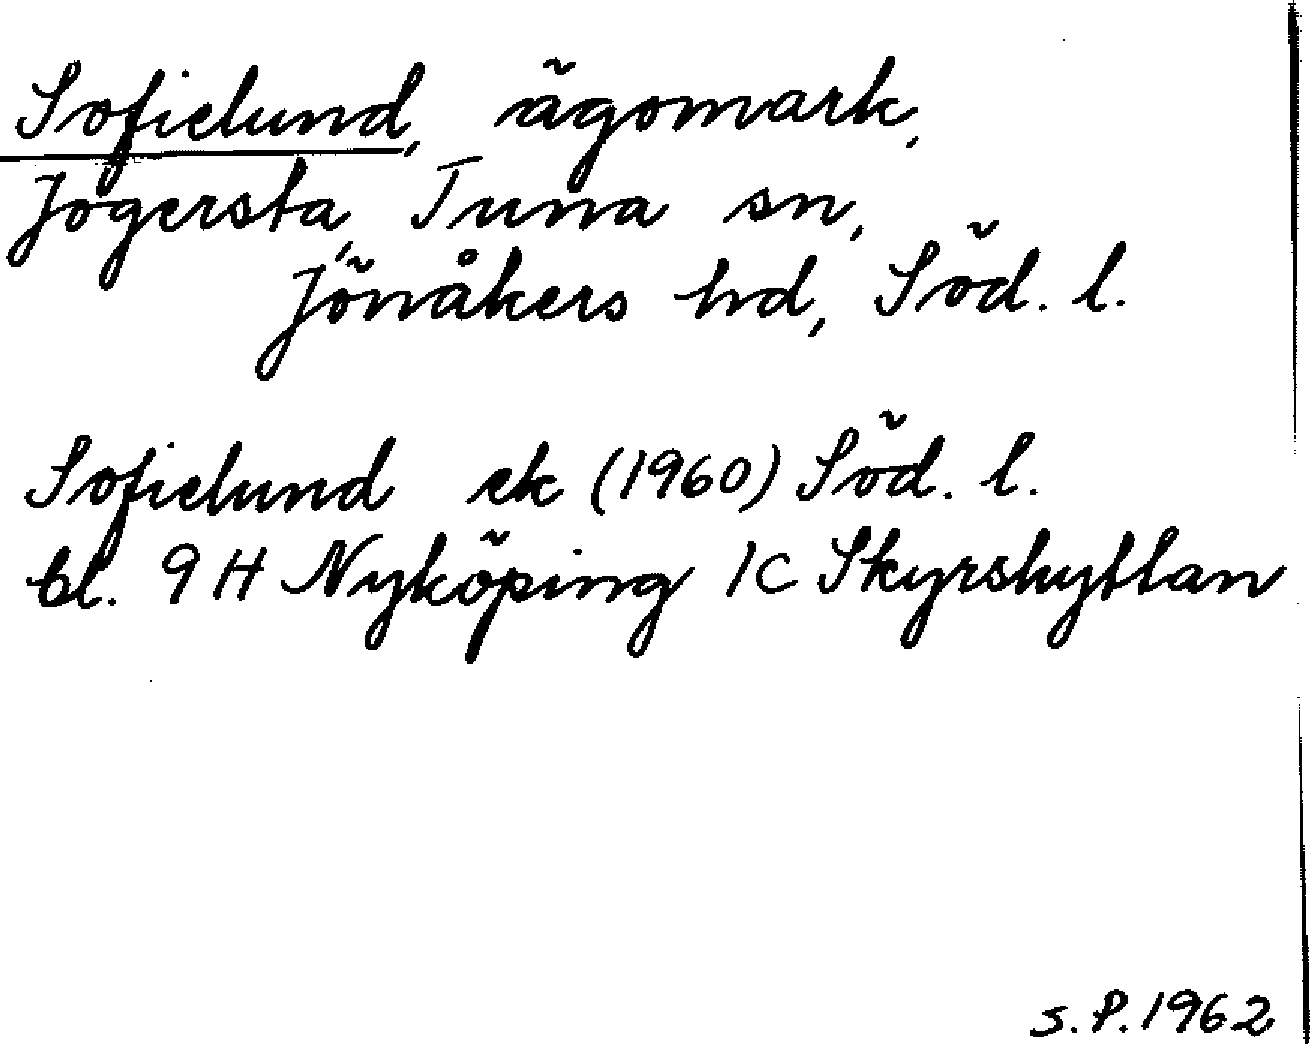 Sofielund, ägomark,
Jogersta, Tuna sn,
Jönåkers hd, Söd. l.
Sofielund ek (1960) Söd. l.
bl. 9 H Nyköping 1C Skyrshyttan
S. P. 1962